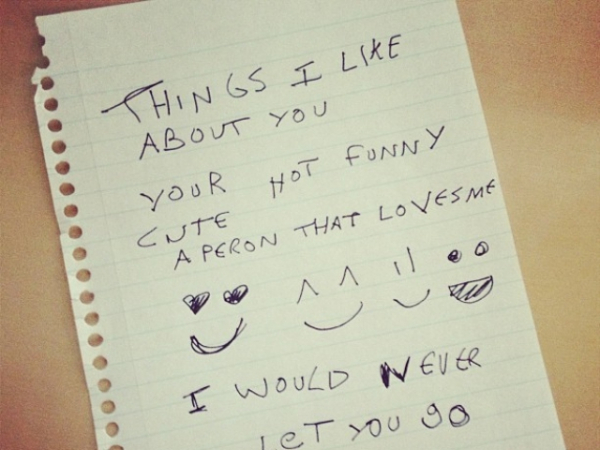 THINGS I LIKE
ABOUT YOU
YOUR HOT FUNNY
CUTE
A PERON THAT LOVES ME
I WOULD NEVER
LET YOU go